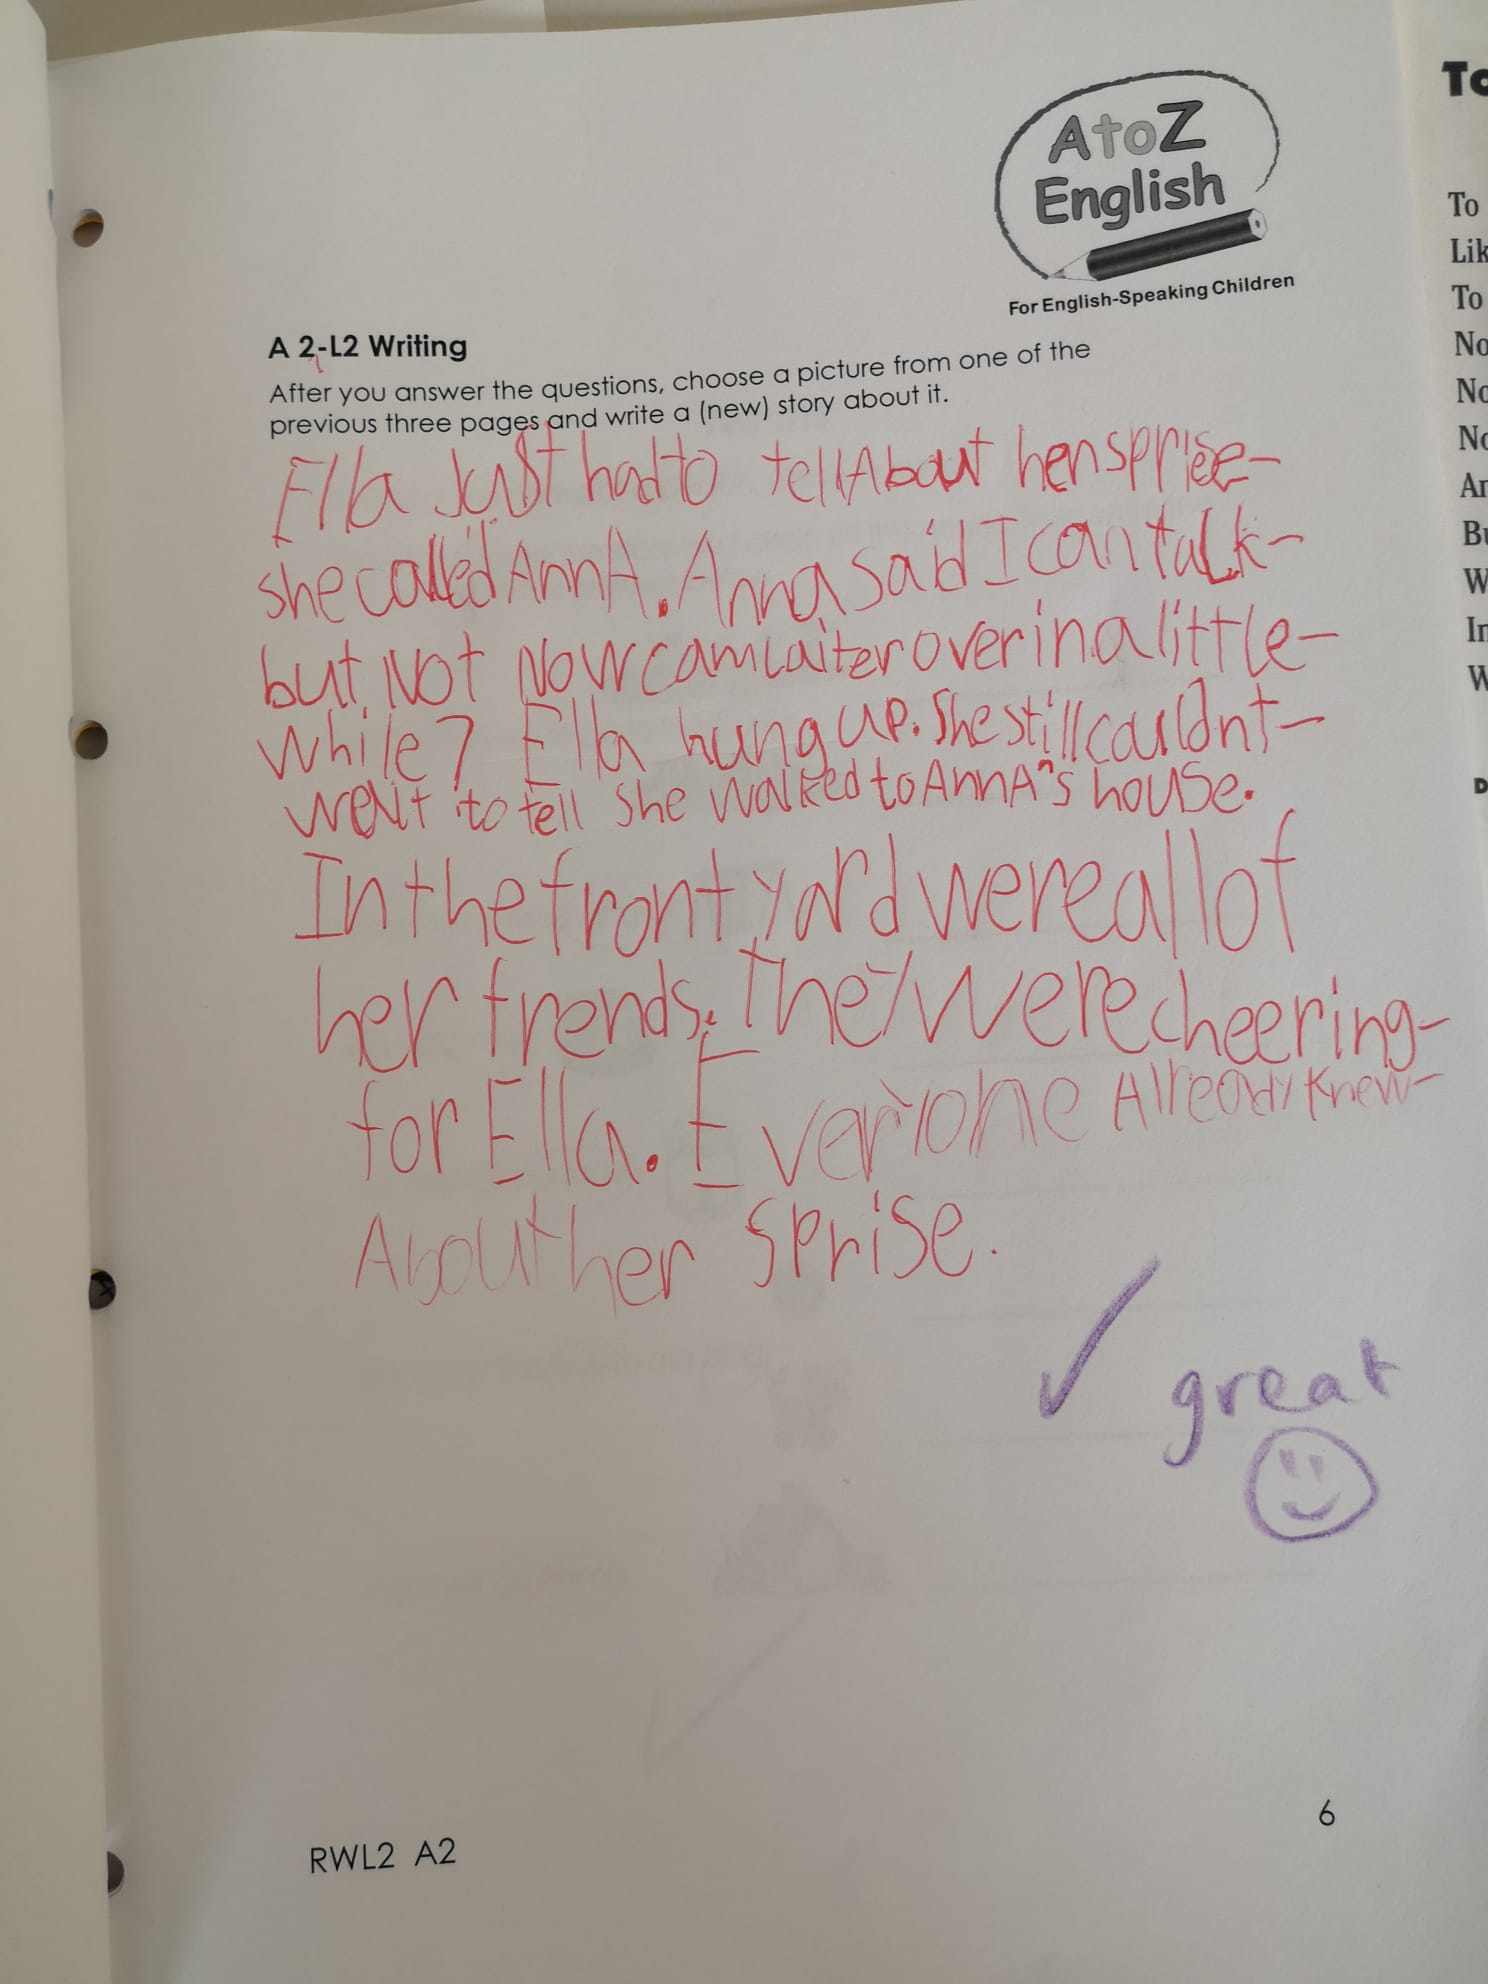 A to Z
English
For English-Speaking Children
A 2-L2 Writing
After you answer the questions, choose a picture from one of the
previous three pages and write a (new) story about it.
Ella Just had to tell About her sprise-
she called AnnA. Anna said I can talk-
but Not Now cam Laiter over in a little-
while? Ella hung up. She still couldnt-
weait to tell She walked to AnnA's house.
In the front yard were all of
her frends. They were cheering-
for Ella. Everyone Already Knew-
About her sprise.
✓ great
RWL2 A2
6
To
To
Lik
To
No
No
No
An
Bu
W
In
W
D